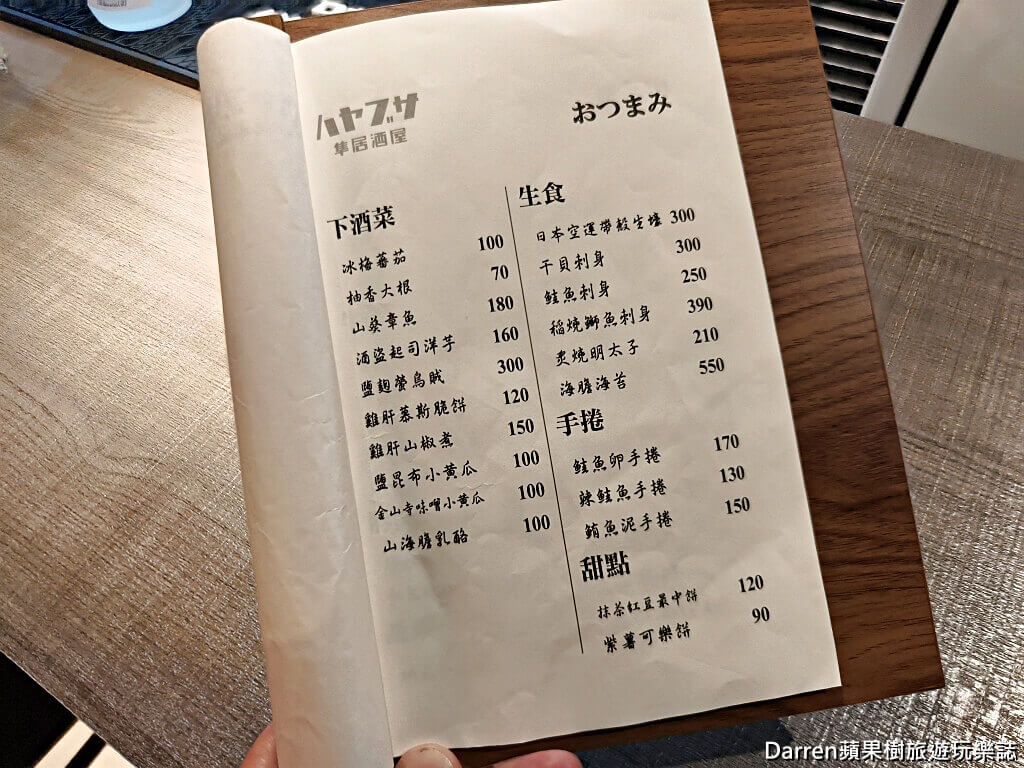 ハヤブサ
隼居酒屋
おつまみ
下酒菜
冰梅蕃茄 100
柚香大根 70
山葵章魚 180
酒盜起司洋芋 160
鹽麴螢烏賊 300
雞肝慕斯脆餅 120
雞肝山椒煮 150
鹽昆布小黃瓜 100
金山寺味噌小黃瓜 100
山海膽乳酪 100
生食
日本空運帶殼生蠔 300
干貝刺身 300
鮭魚刺身 250
稻燒鰤魚刺身 390
炙燒明太子 210
海膽海苔 550
手捲
鮭魚卵手捲 170
辣鮭魚手捲 130
鮪魚泥手捲 150
甜點
抹茶紅豆最中餅 120
紫薯可樂餅 90
Darren蘋果樹旅遊玩樂誌